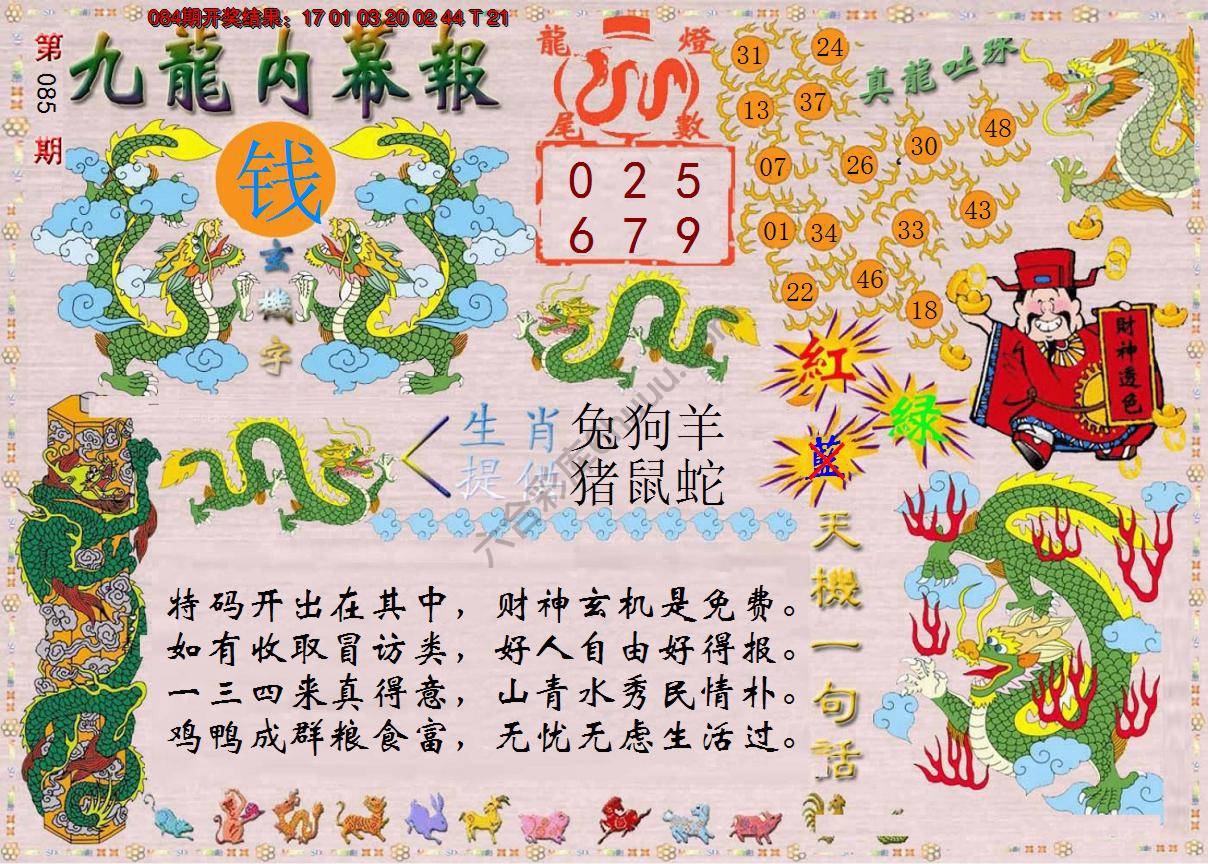 084期开奖结果：17 01 03 20 02 44 T 21
第085期
九龍内幕報
钱
玄機字
龍燈
尾數
0 2 5
6 7 9
真龍吐珠
31 24
13 37
07 26 30 48
01 34 33 43
22 46 18
財神透色
紅
綠
藍
生肖 兔狗羊
提供 猪鼠蛇
特码开出在其中，财神玄机是免费。
如有收取冒访类，好人自由好得报。
一三四来真得意，山青水秀民情朴。
鸡鸭成群粮食富，无忧无虑生活过。
天機一句話